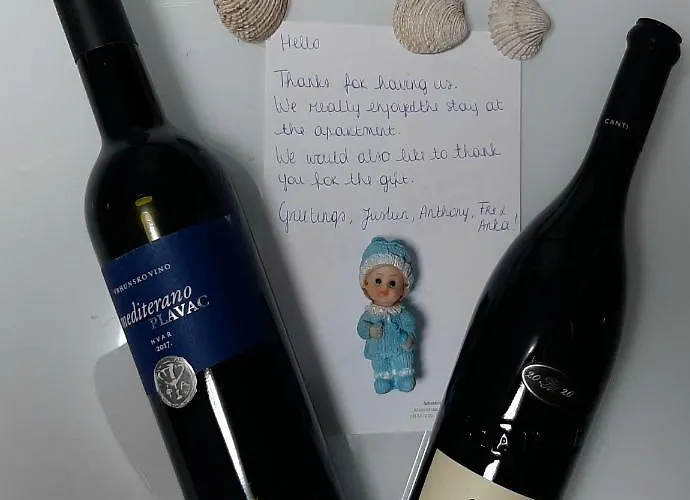 Hello
Thanks for having us.
We really enjoyed the stay at
the apartment.
We would also like to thank
you for the gift.
Greetings, Justen, Anthony, Fkex
Anka!
mediterano
PLAVAC
HVAR
2017.
CANTI
20 20